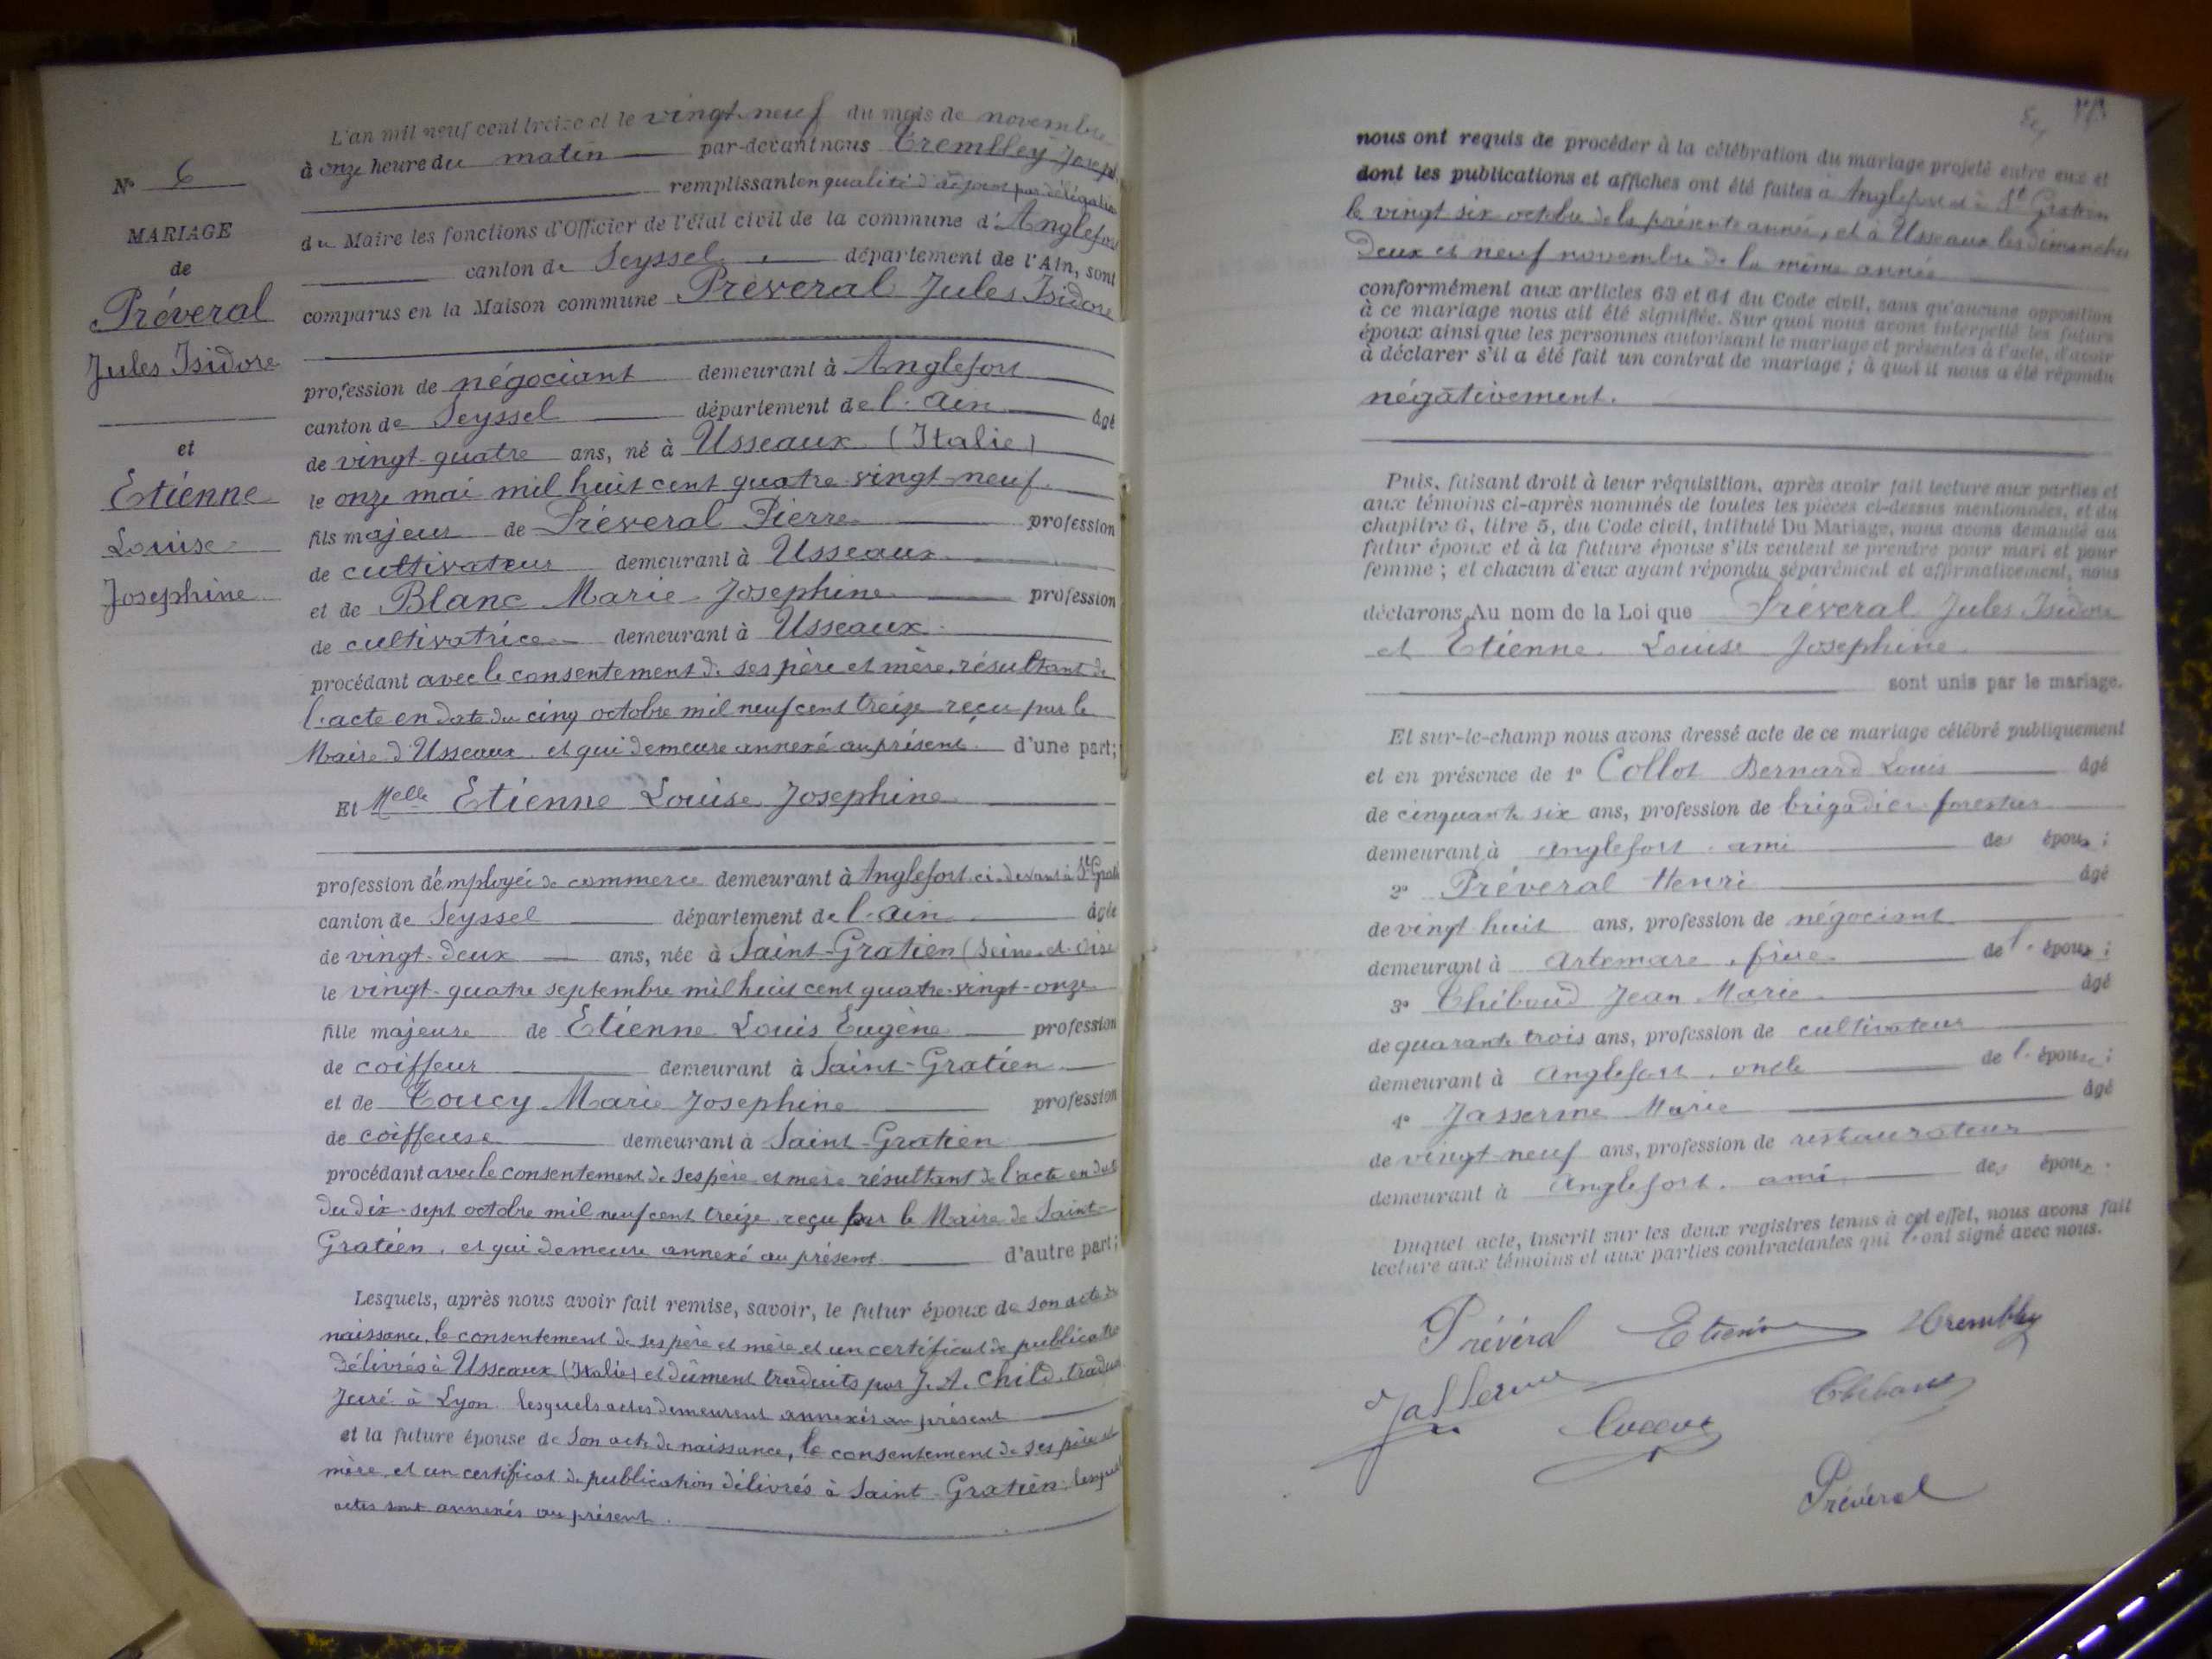 N° 6
MARIAGE
de
Préveral
Jules Isidore
et
Etienne
Louise
Josephine
L'an mil neuf cent treize et le vingt-neuf du mois de novembre
à onze heure du matin par-devant nous Trembley Joseph
remplissant en qualité d'adjoint par délégation
du Maire les fonctions d'Officier de l'état civil de la commune d'Anglefort
canton de Seyssel, département de l'Ain, sont
comparus en la Maison commune Préveral Jules Isidore
profession de négociant demeurant à Anglefort
canton de Seyssel département de l'Ain âgé
de vingt-quatre ans, né à Usseaux (Italie)
le onze mai mil huit cent quatre-vingt-neuf.
fils majeur de Préveral Pierre profession
de cultivateur demeurant à Usseaux
et de Blanc Marie Josephine profession
de cultivatrice demeurant à Usseaux
procédant avec le consentement de ses père et mère, résultant de
l'acte en date du cinq octobre mil neuf cent treize reçu par le
Maire d'Usseaux et qui demeure annexé au présent d'une part;
Et Melle Etienne Louise Josephine
profession d'employée de commerce demeurant à Anglefort ci-devant à St Gratien
canton de Seyssel département de l'Ain âgée
de vingt-deux ans, née à Saint-Gratien (Seine-et-Oise
le vingt-quatre septembre mil huit cent quatre-vingt-onze
fille majeure de Etienne Louis Eugène profession
de coiffeur demeurant à Saint-Gratien
et de Toucy Marie Josephine profession
de coiffeuse demeurant à Saint-Gratien
procédant avec le consentement de ses père et mère résultant de l'acte en date
du dix-sept octobre mil neuf cent treize reçu par le Maire de Saint-
Gratien, et qui demeure annexé au présent d'autre part;
Lesquels, après nous avoir fait remise, savoir, le futur époux de son acte de
naissance, le consentement de ses père et mère et un certificat de publication
délivrés à Usseaux (Italie) et dûment traduits par J. A. Child, traduc
juré à Lyon lesquels actes demeurent annexés au présent
et la future épouse de son acte de naissance, le consentement de ses père et
mère et un certificat de publication délivrés à Saint-Gratien lesquels
actes sont annexés au présent.
nous ont requis de procéder à la célébration du mariage projeté entre eux et
dont les publications et affiches ont été faites à Anglefort et à St Gratien
le vingt six octobre de la présente année, et à Usseaux les dimanches
deux et neuf novembre de la même année
conformément aux articles 63 et 64 du Code civil, sans qu'aucune opposition
à ce mariage nous ait été signifiée. Sur quoi nous avons interpellé les futurs
époux ainsi que les personnes autorisant le mariage et présentes à l'acte, d'avoir
à déclarer s'il a été fait un contrat de mariage; à quoi il nous a été répondu
négativement.
Puis, faisant droit à leur réquisition, après avoir fait lecture aux parties et
aux témoins ci-après nommés de toutes les pièces ci-dessus mentionnées, et du
chapitre 6, titre 5, du Code civil, intitulé Du Mariage, nous avons demandé au
futur époux et à la future épouse s'ils veulent se prendre pour mari et pour
femme; et chacun d'eux ayant répondu séparément et affirmativement, nous
déclarons, Au nom de la Loi que Préveral Jules Isidore
et Etienne Louise Josephine
sont unis par le mariage.
Et sur-le-champ nous avons dressé acte de ce mariage célébré publiquement
et en présence de 1° Collot Bernard Louis âgé
de cinquante six ans, profession de brigadier forestier
demeurant à Anglefort, ami des époux;
2° Préveral Henri âgé
de vingt huit ans, profession de négociant
demeurant à Artemare, frère de l'époux;
3° Thibaud Jean Marie âgé
de quarante trois ans, profession de cultivateur
demeurant à Anglefort, oncle de l'épouse;
4° Jasserme Marie âgé
de vingt-neuf ans, profession de restaurateur
demeurant à Anglefort, ami des époux.
Duquel acte, inscrit sur les deux registres tenus à cet effet, nous avons fait
lecture aux témoins et aux parties contractantes qui l'ont signé avec nous.
Prévéral Etienne Trembley
Thibaud
Prévéral